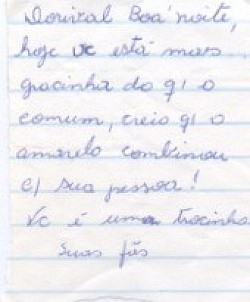 Dorival Boa noite,
hoje vc está mais
gracinha do q o
comum, creio q o
amarelo combinou
c/ sua pessoa!
Vc é uma trocinha
Suas fãs